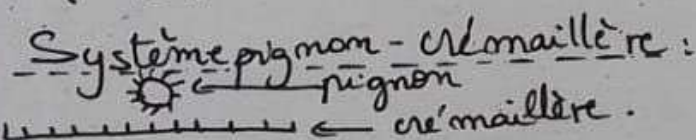 Système pignon - crémaillère :
pignon
crémaillère.